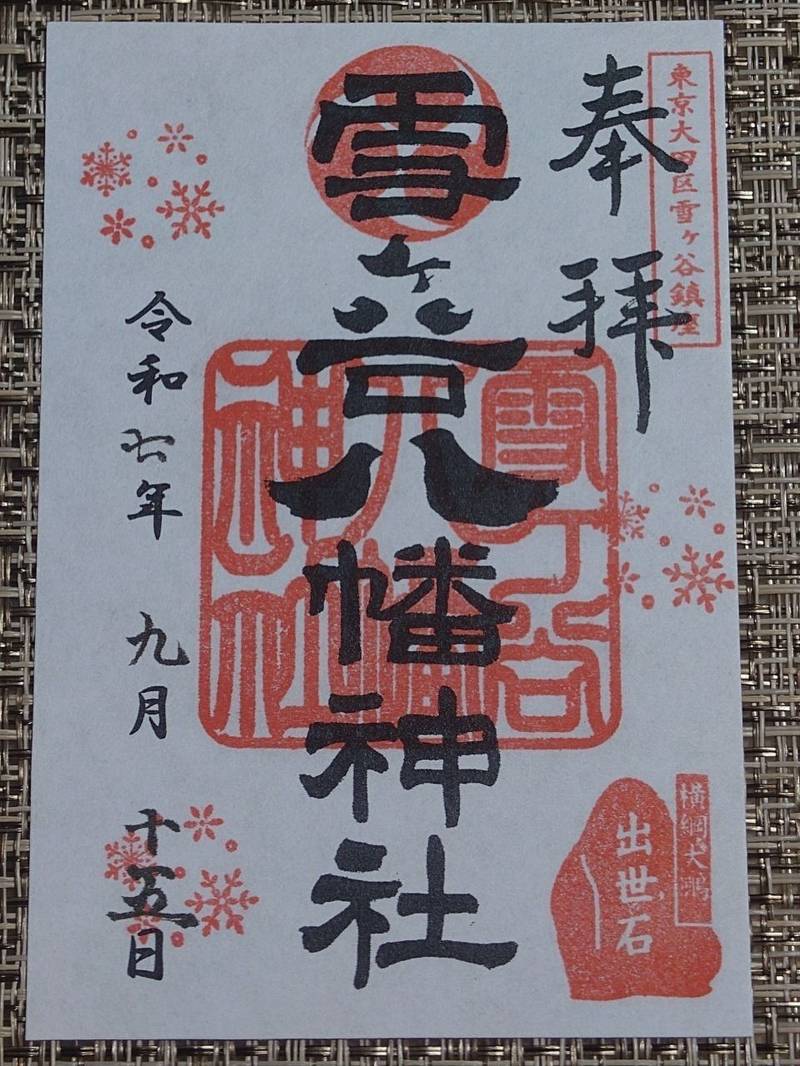 東京大田区雪ヶ谷鎮座
奉拝
雪ヶ谷八幡神社
雪ヶ谷
八幡
神社
横綱大鵬
出世石
令和 年 九月 十五日